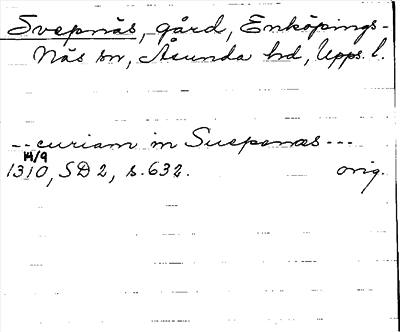 Svepnäs, gård, Enköpings-
Näs sn, Åsunda hd, Upps. l.
-- curiam in Suepnæs ---
14/9
1310, SD 2, s. 632. orig.